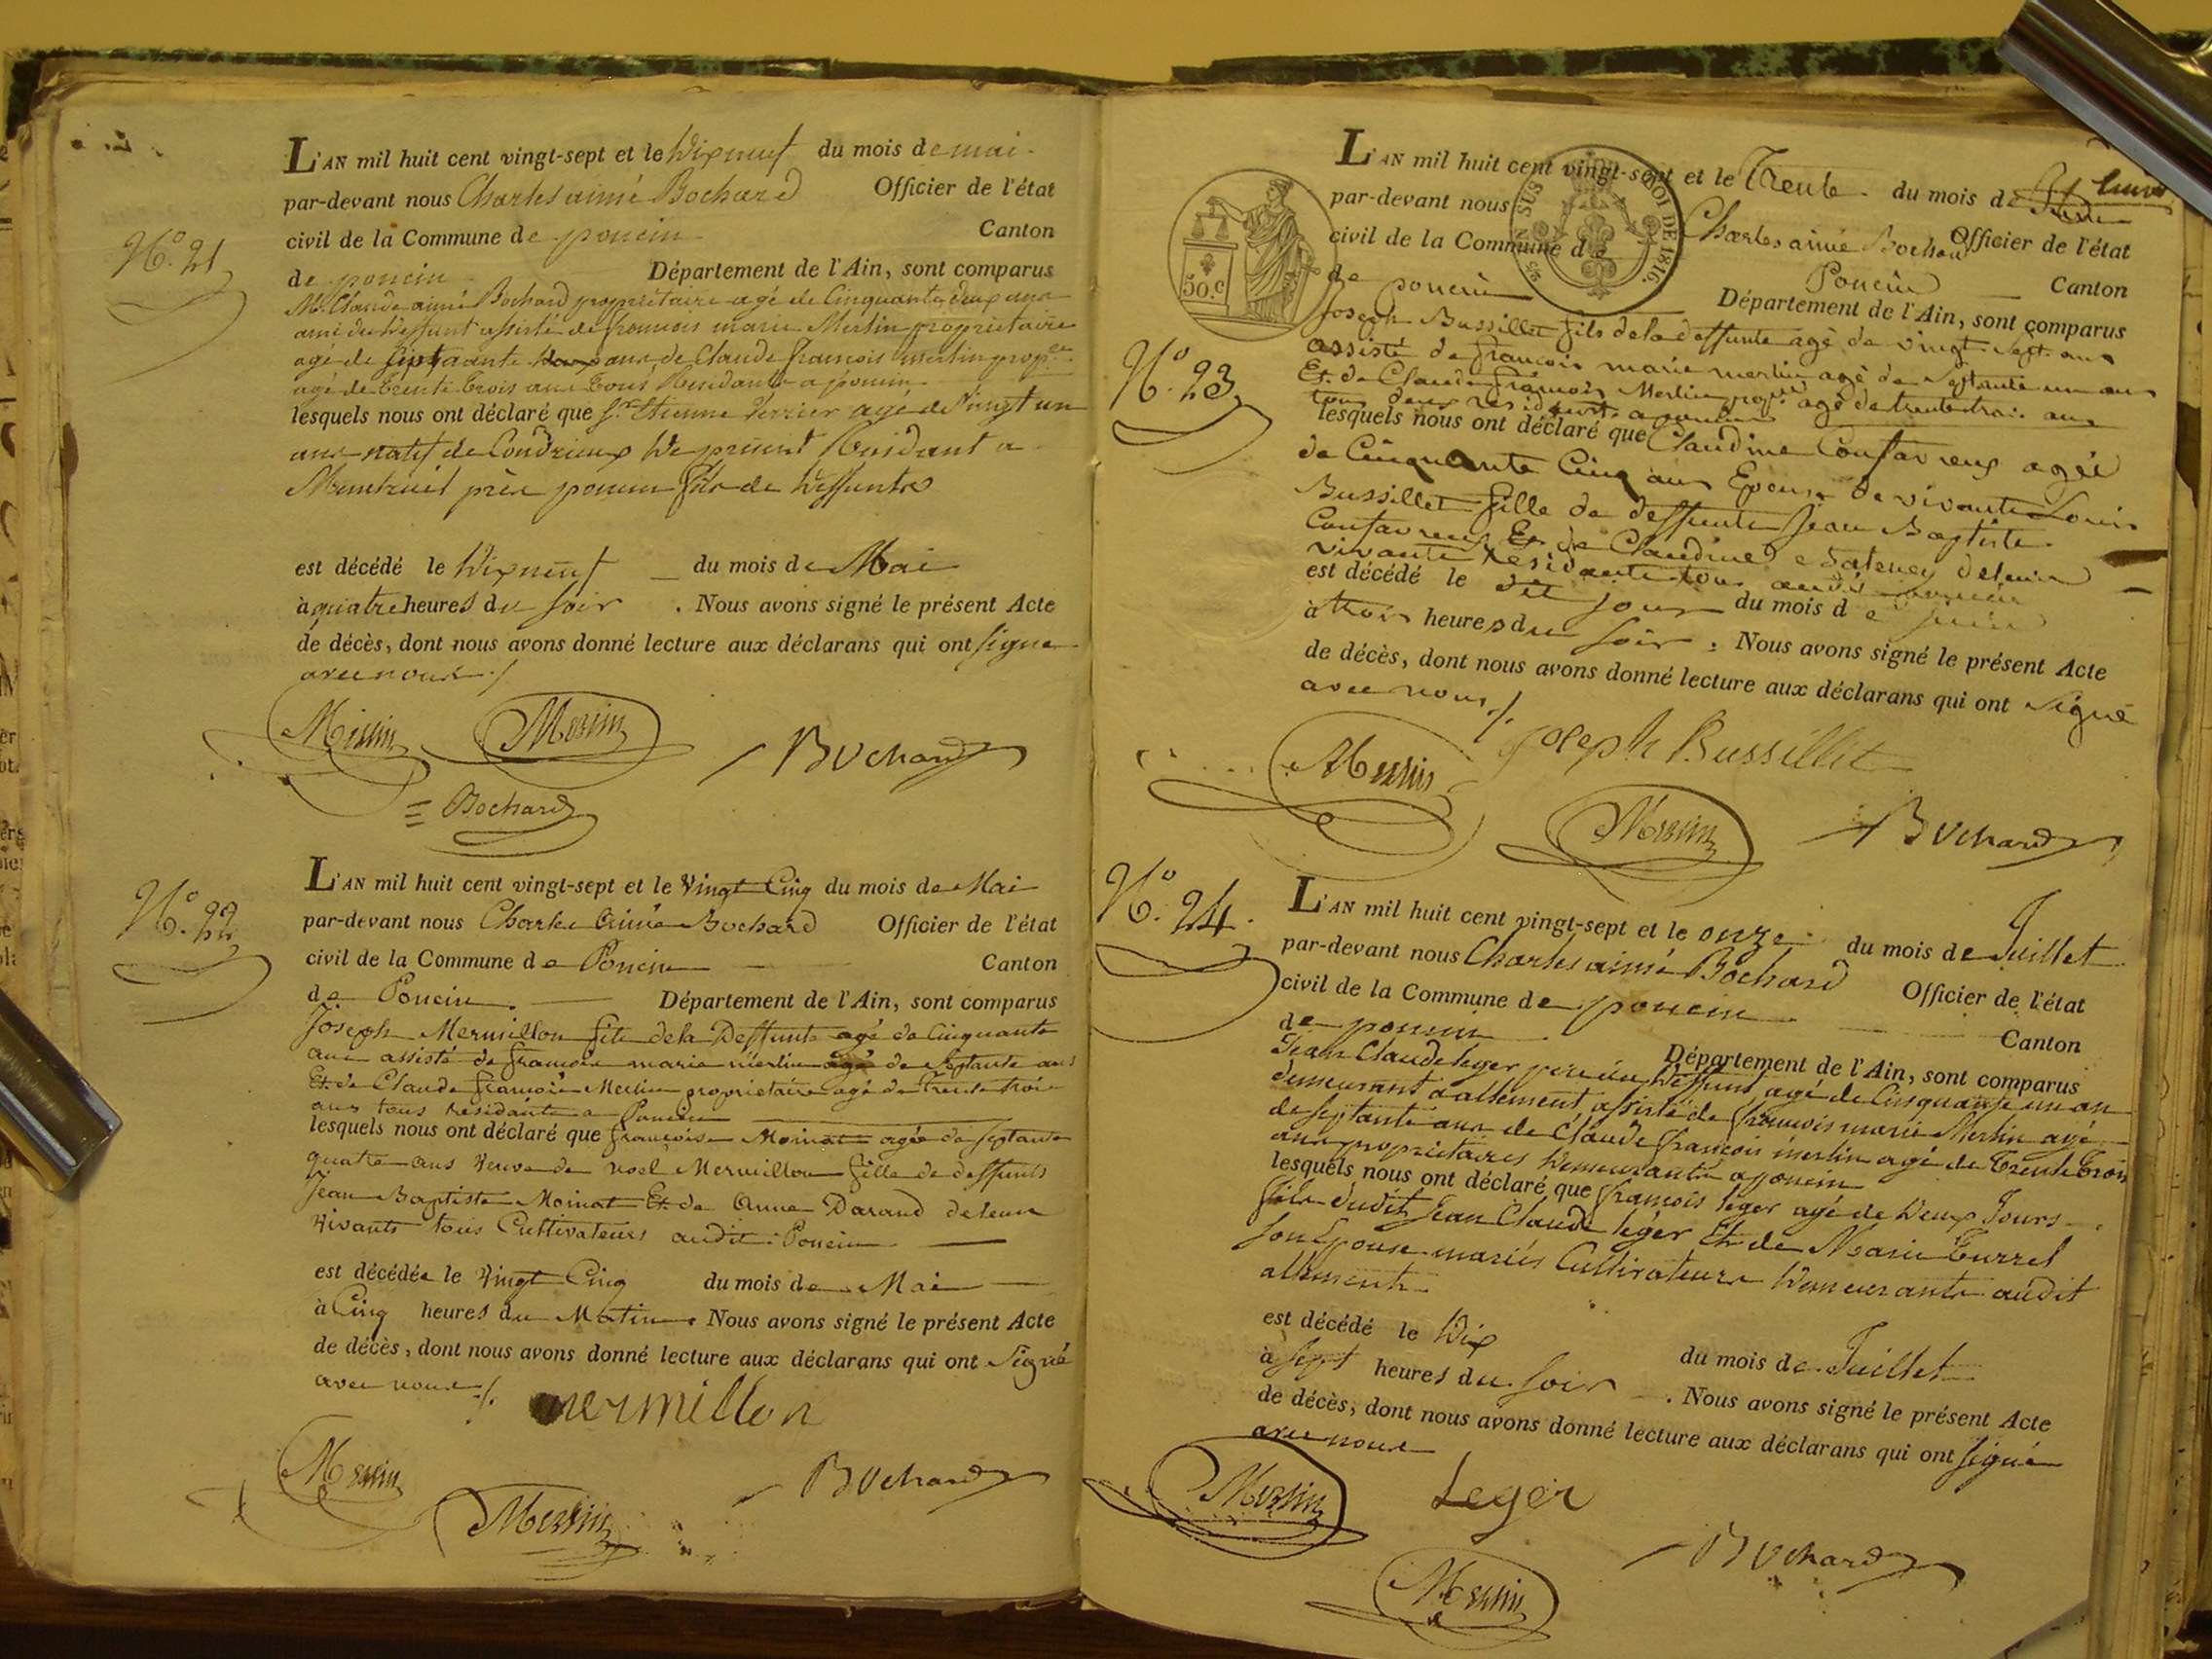 N.° 21
L'AN mil huit cent vingt-sept et le Dixneuf du mois de mai
par-devant nous Charles aimé Bochard Officier de l'état
civil de la Commune de poncin Canton
de poncin Département de l'Ain, sont comparus
Mr. Claude aimé Bochard propriétaire agé de Cinquante deux ans
ami du deffunt assisté de françois marie Merlin propriétaire
agé de septante ans de Claude françois merlin prop.re
agé de trente trois ans tous Residants a poncin
lesquels nous ont déclaré que Sr. Etienne Verrier agé de Vingt un
ans natif de Condrieux De présent Residant a
près poncin fils de Deffunts
est décédé le Dixneuf du mois de Mai
à quatre heures du soir. Nous avons signé le présent Acte
de décès, dont nous avons donné lecture aux déclarans qui ont signé
avec nous ./
Merlin Merlin Bochard
Bochard
N.° 22
L'AN mil huit cent vingt-sept et le Vingt Cinq du mois de Mai
par-devant nous Charles Aimé Bochard Officier de l'état
civil de la Commune de Poncin Canton
de Poncin Département de l'Ain, sont comparus
Joseph Mermillon fils de la Deffunte agé de Cinquante
ans assisté de françois marie merlin agé de Septante ans
Et de Claude françois Merlin propriétaire agé de Trente trois
ans tous residants a Poncin
lesquels nous ont déclaré que françoise Moinat agée de septante
quatre ans Veuve de noel Mermillon fille de deffunts
Jean Baptiste Moinat Et de Anne Darand de leur
Vivants tous Cultivateurs audit Poncin
est décédée le Vingt Cinq du mois de Mai
à Cinq heures du Matin. Nous avons signé le présent Acte
de décès, dont nous avons donné lecture aux déclarans qui ont Signé
avec nous ./.
mermillon
Merlin Merlin Bochard
50.c
ROI DE 1816.
N.° 23
L'AN mil huit cent vingt-sept et le Trente du mois de Juin
par-devant nous Charles aimé Bochard Officier de l'état
civil de la Commune de Poncin Canton
de poncin Département de l'Ain, sont comparus
Joseph Bussillet fils de la deffunte agé de vingt Sept ans
assisté de françois marie merlin agé de Septante un ans
Et de Claude françois Merlin agé de trente trois ans
tous deux residents a poncin
lesquels nous ont déclaré que Claudine Confavreux agée
de Cinquante Cinq ans Epouse de vivant Louis
Bussillet fille de deffunts Jean Baptiste
Confavreux Et de Claudine de leur
vivants residants tous audit poncin
est décédé le dit jour du mois de juin
à trois heures du soir. Nous avons signé le présent Acte
de décès, dont nous avons donné lecture aux déclarans qui ont Signé
avec nous ./.
Merlin Joseph Bussillet
Merlin Bochard
N.° 24.
L'AN mil huit cent vingt-sept et le onze du mois de Juillet
par-devant nous Charles aimé Bochard Officier de l'état
civil de la Commune de poncin Canton
de poncin Département de l'Ain, sont comparus
Jean Claude leger pere du Deffunt, agé de Cinquante un an
demeurant a allement assisté de françois marie Merlin agé
de septante ans de Claude françois merlin agé de trente trois
ans propriétaires Demeurants a poncin
lesquels nous ont déclaré que françois leger agé de Deux Jours
fils dudit Jean Claude leger Et de Marie Turrel
son Epouse mariés Cultivateurs Demeurants audit
allement
est décédé le Dix du mois de Juillet
à sept heures du soir. Nous avons signé le présent Acte
de décès, dont nous avons donné lecture aux déclarans qui ont signé
avec nous
Merlin Leger
Merlin Bochard